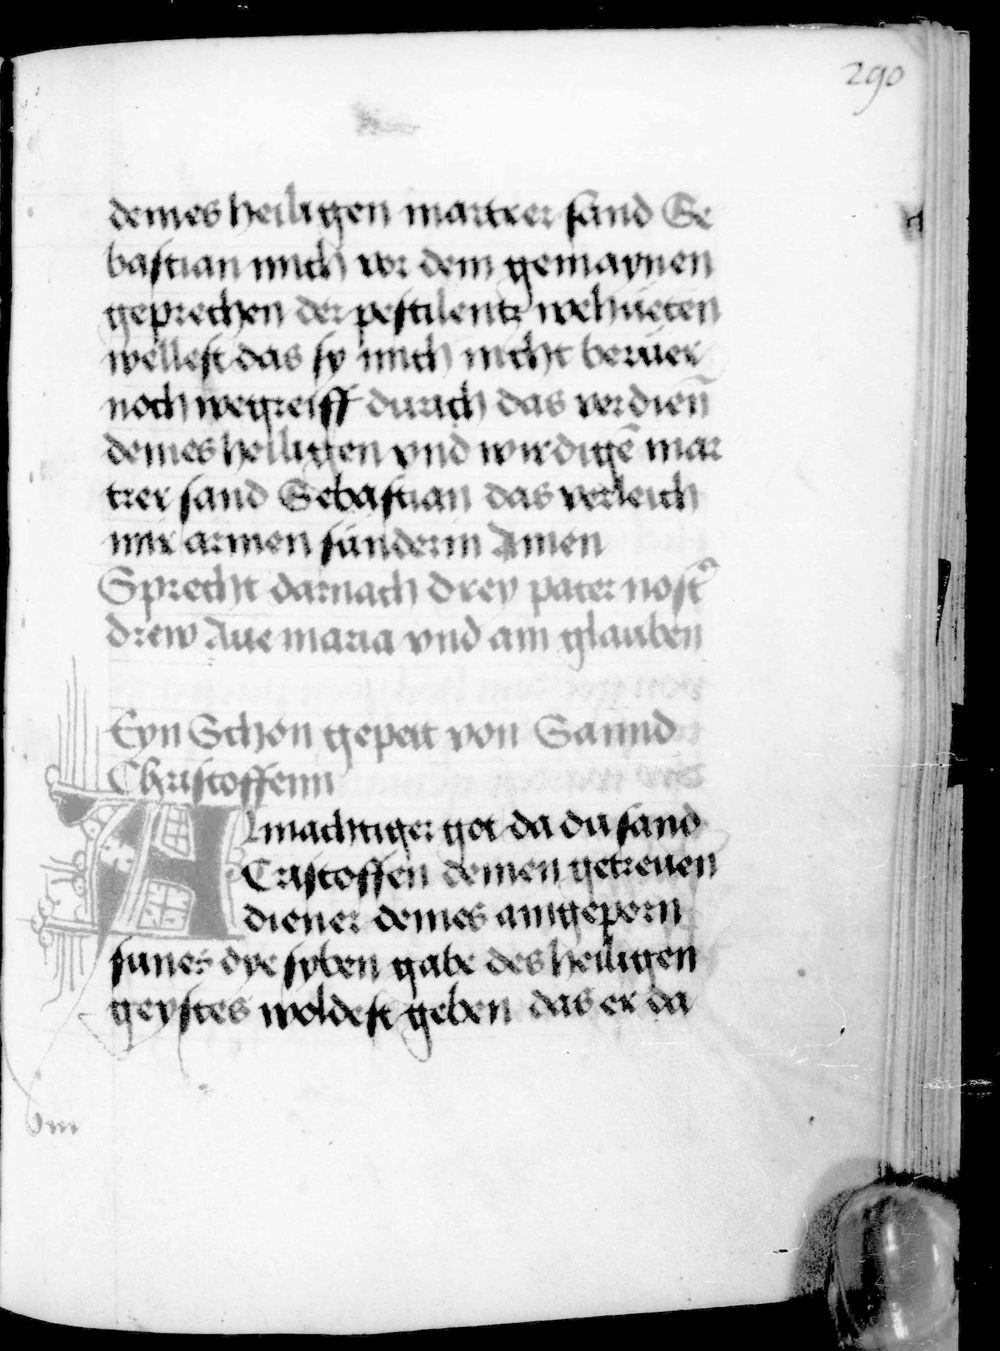 290
deines heiligen martrer sand Se
bastian mich vor dem gemaynen
geprechen der pestilentz wehüeten
wellest das sy mich nicht berüer
noch wegreiff durich das verdien̄
deines heiligen vnd wirdigē mar
trer sand Sebastian das verleich
mir armen sünderin Amen
Sprecht darnach drey pater nost̉
drew Aue maria vnd ain glauben
Eyn Schon gepett von Sannd
Christoffenn
Almachtiger got da du sand
Cristoffen deinen getreuen
diener deines aingeporn
sunes dye syben gabe des heiligen
geystes woldest geben das er da